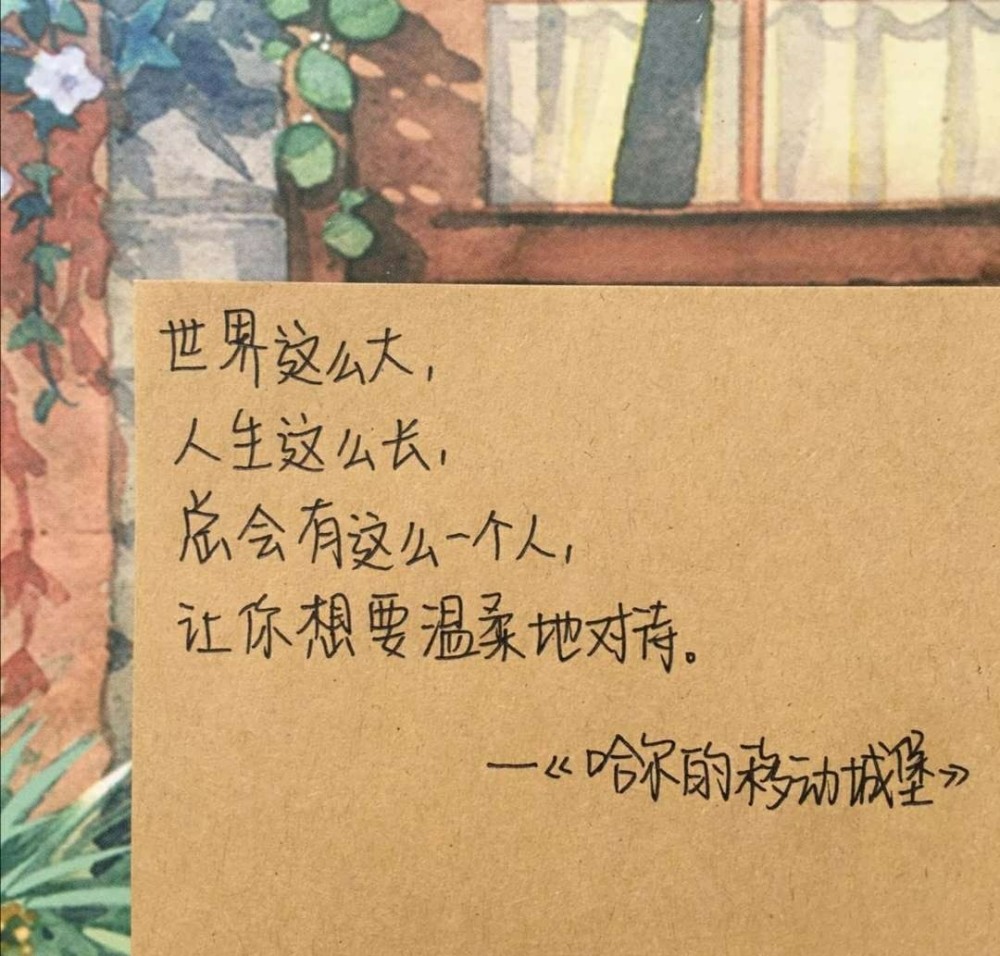 世界这么大,
人生这么长,
总会有这么一个人,
让你想要温柔地对待。
—《哈尔的移动城堡》